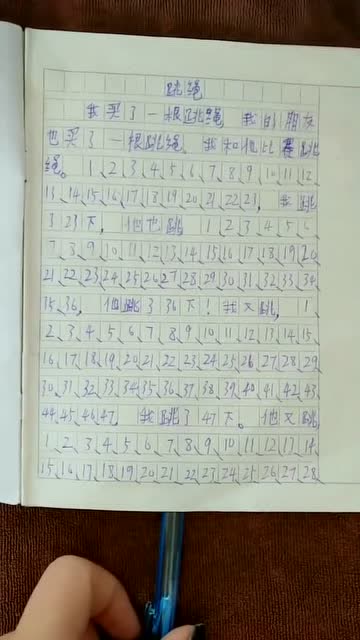 跳绳
我买了一根跳绳，我的朋友
也买了一根跳绳。我和他比赛跳
绳。1、2、3、4、5、6、7、8、9、10、11、12、
13、14、15、16、17、18、19、20、21、22、23，我跳
了23下，他也跳1、2、3、4、5、6、
7、8、9、10、11、12、13、14、15、16、17、18、19、20、
21、22、23、24、25、26、27、28、29、30、31、32、33、34、
35、36，他跳了36下！我又跳，1、
2、3、4、5、6、7、8、9、10、11、12、13、14、15、
16、17、18、19、20、21、22、23、24、25、26、27、28、29、
30、31、32、33、34、35、36、37、38、39、40、41、42、43、
44、45、46、47，我跳了47下。他又跳
1、2、3、4、5、6、7、8、9、10、11、12、13、14、
15、16、17、18、19、20、21、22、23、24、25、26、27、28、